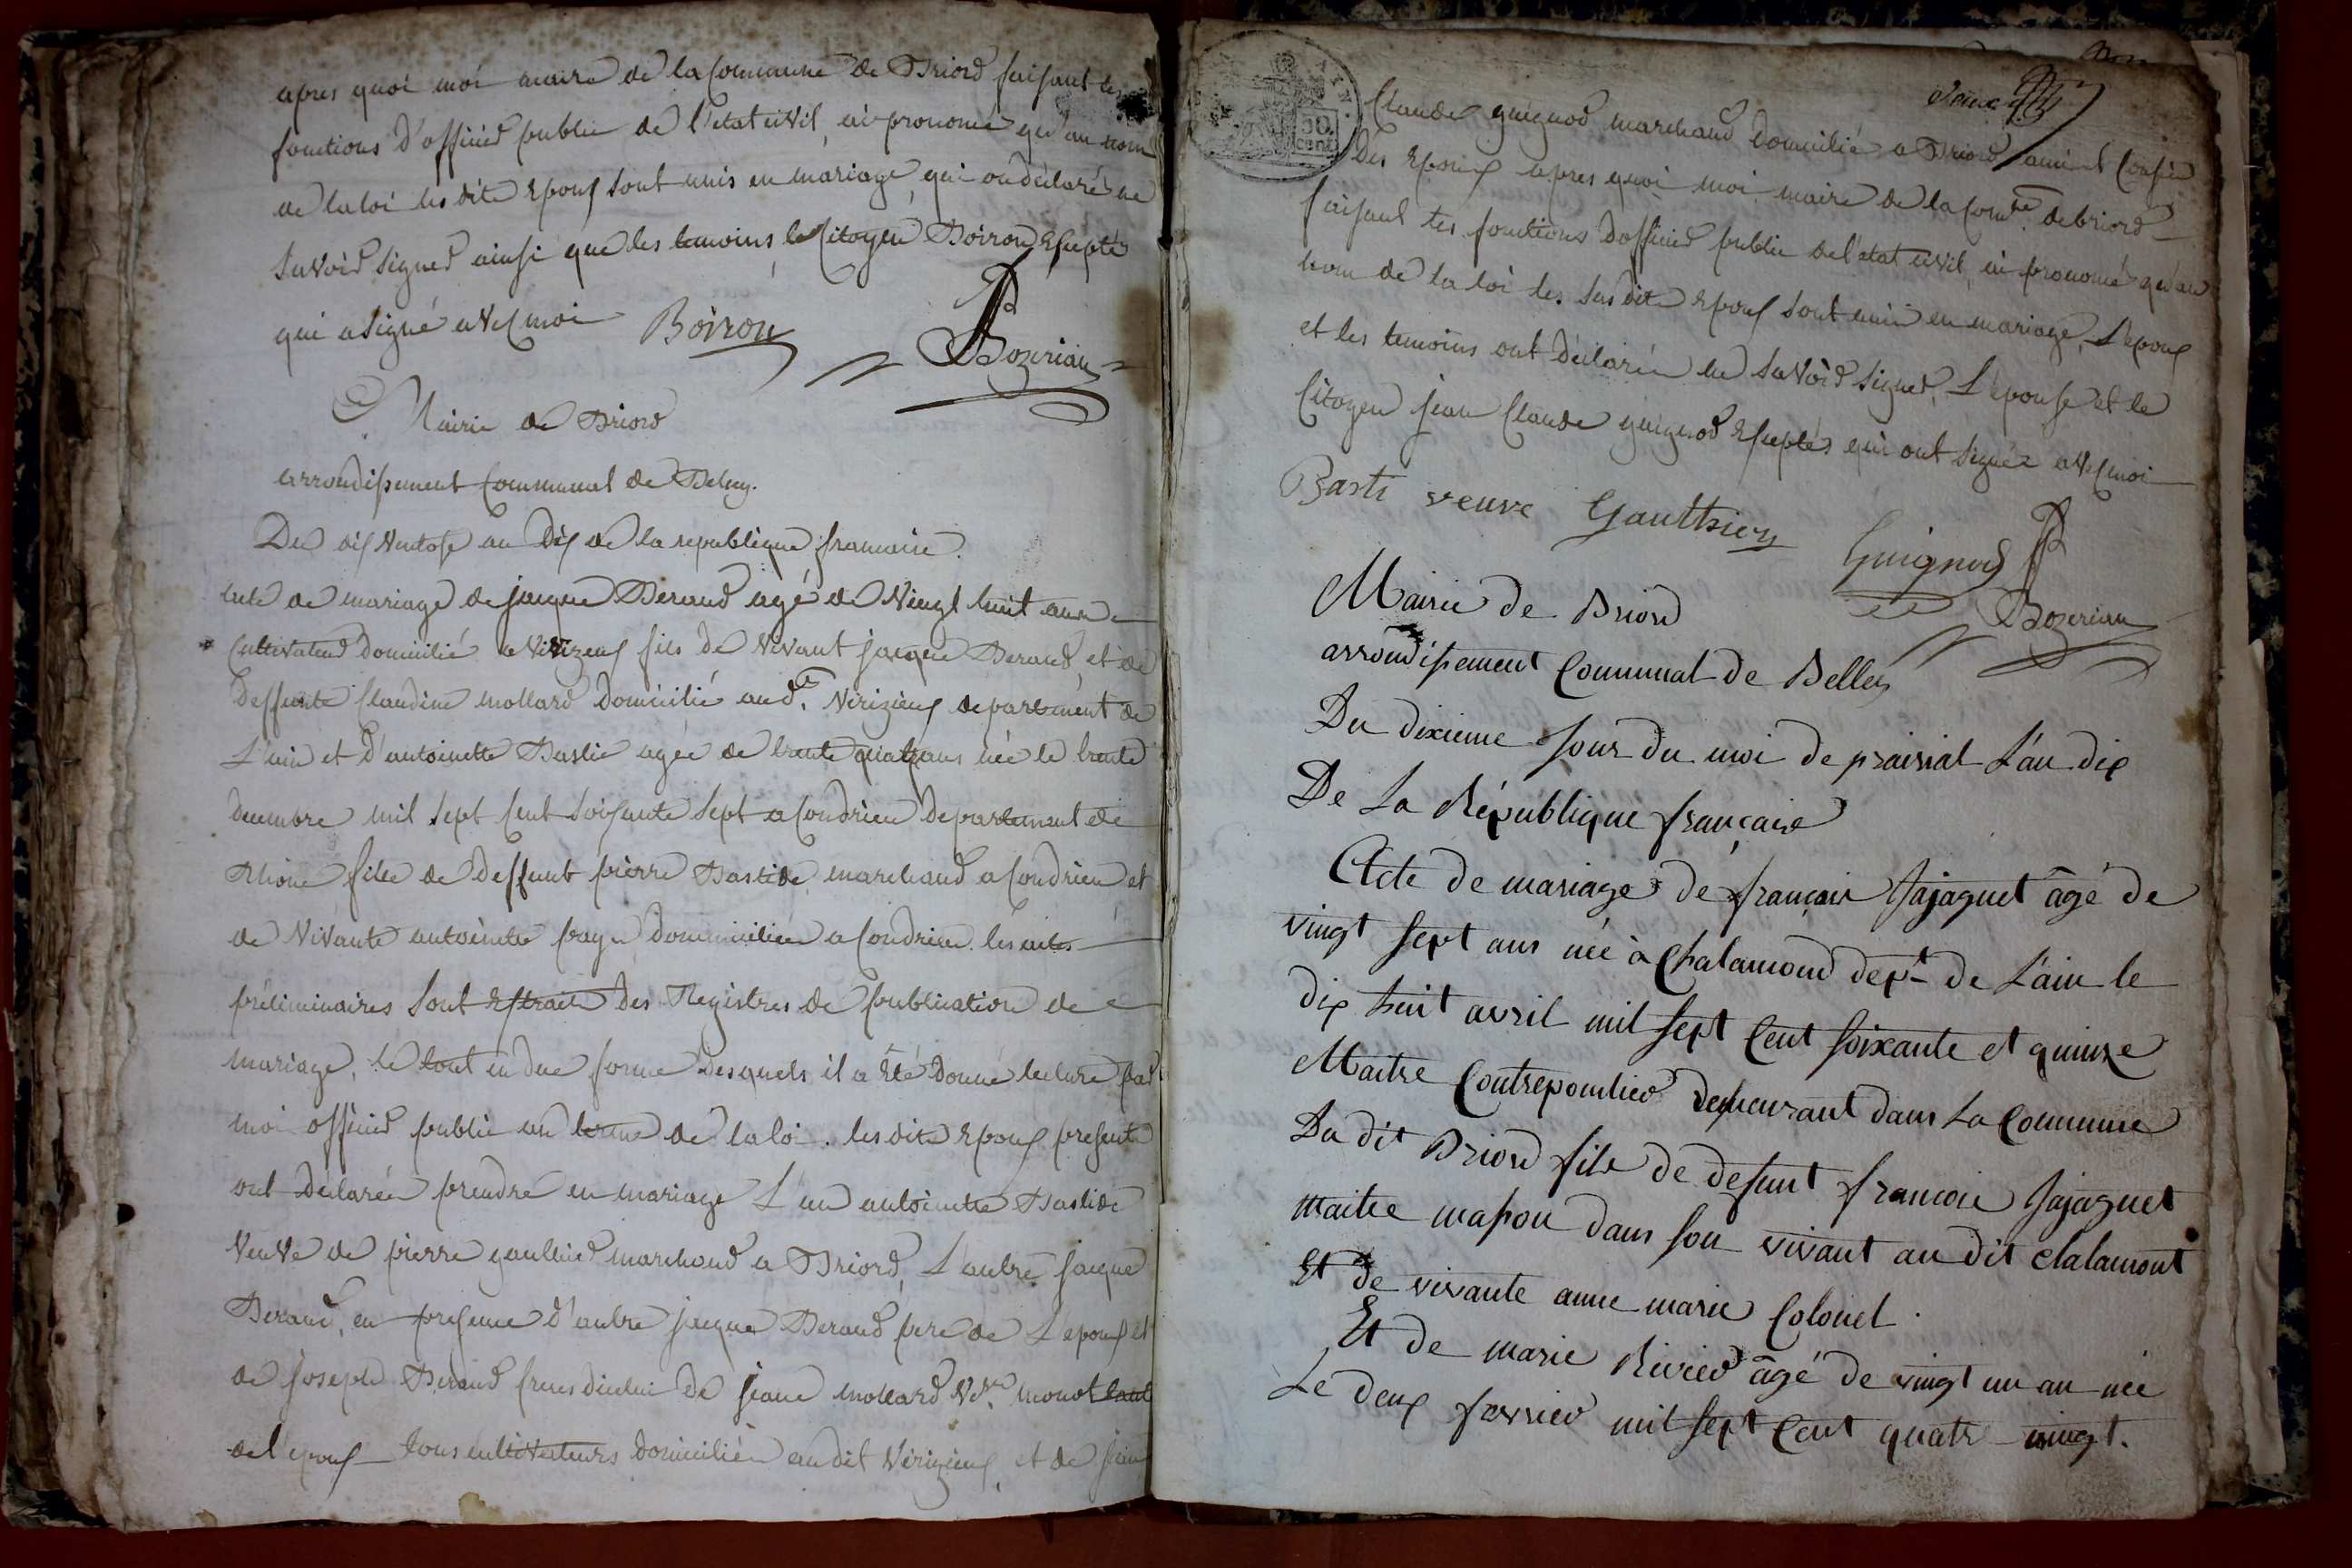 apres quoi moi maire de la Commune de Briord faisant les
fonctions d'officier public de l'etat civil, ai prononcé qu'au nom
de la loi les dits epoux sont unis en mariage, qui on déclaré ne
savoir signer ainsi que les temoins, le Citoyen Boiron Excepté
qui a signé avec moi Boiron
Bozerian
Mairie de Briord
arrondissement Communal de Beley.
Du dix Ventose an Dix de la republique francaise.
acte de mariage de jacque Beraud agé de Vingt huit ans
Cultivateur domicilié a Virizeux fils de vivant jacque Beraud, et de
deffunte Claudine mollard domicilié aud.t Virizieux departement de
L'ain et d'antoinette Bastie agée de trente quatrans née le trente
decembre mil sept Cent soisante sept a Condrieu departement de
Rhone fille de deffunt pierre Bastide, marchand a Condrieu et
de vivante antoinette domiciliée a Condrieu. les actes
préliminaires sont Extraits des Registres de publication de
mariage, le tout en due forme desquels il a Eté donné lecture par
moi officier public au terme de la loi. les dits Epoux presents
ont déclarée prendre en mariage L'un antoinette Bastide
Veuve de pierre gaultier marchand a Briord, L'autre jacque
Beraud, en presence d'autre jacque Beraud pere de L'epoux et
de joseph Beraud freres dicelui de jeane mollard Ve. monot tante
de l'epoux tous cultivateurs domiciliés audit Virizieux, et de jean
Claude guignod marchand domicilié a Briord amis et Cousin
des Epoux apres quoi moi maire de la Comne. de briord
faisant les fonctions d'officier public de l'etat civil, ai prononcé qu'au
nom de la loi les susdits Epoux sont unis en mariage, L'epoux
et les temoins ont déclarée ne savoir signer, L'epouse et le
Citoyen jean Claude guignod Exceptés qui ont signée avec moi
Basti veuve Gautthier Guignod
Bozerian
Mairie de Briord
arrondissement Communal de Belley
Du dixieme Jour du moi de prairial L'an dix
De La République française
Acte de mariage de françois Jajaquet âgé de
vingt sept ans née à Chalamond dept. de L'ain le
dix huit avril mil sept Cent soixante et quinze
Maitre Contrepointier demeurant dans La Commune
Du dit Briord fils de defunt francois Jajaquet
maitre masson dans son vivant au dit chalamont
Et de vivante anne marie Colonel.
Et de marie Rivier âgé de vingt un an née
Le deux fevrier mil sept Cent quatre vingt.